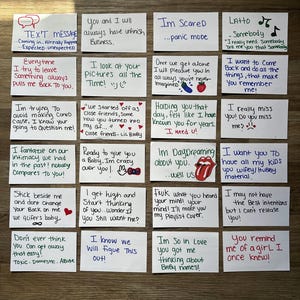 TEXT MESSAGE
Coming in, Normally Happens
Expected, unexpected
You and I will
always have unfinish
Business.
I'm Scared
...panic mode
Latto
Somebody
I really need Somebody
are me you that Somebody
Everytime
I try to
leave Something
always pulls
me Back to You.
I look at
your
Pictures all the
Time!
Once we get alone
I will pleasure you in
all ways you're never
imagine
I want to Come
Back and do all the
things, that make
You remember
me!
I'm trying to
avoid making Convo
cause, I know your
going to Question me!
We Started off as
Close friends, Some
how you turned into
my
Close friends - Lis Bagby
Holding you that
day, felt like I have
known you for years.
I need u!
I really miss
you! Do you
miss
me?
I fantasize on our
intimacy we had
in the past! nobody
Compares to You!
Ready to give you
a Baby, I'm crazy
over you!
I'm DayDreaming
about you..
well
us
I want you to
have all my kids
you wifey/hubby
material
Stick beside me
and dare Change
your Back on me
we lifers baby
I get high and
Start thinking
of you. wonder if
you Still want me?
Fuck what you heard
your mind! your
mind! I'll make you
my Playlist Cover.
I may not have
the Best intentions
but I can't release
you!
Don't ever think
You Can get away
that easy!
Toxic - Domestic - Abuse
I know we
will figure This
out!
I'm So in Love
you got me
thinking about
Baby names!
You remind
me of a girl I
once knew!